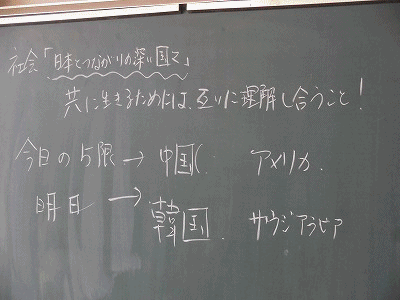 社会「日本とつながりの深い国々」
共に生きるためには、互いに理解し合うこと!
今日の5限→中国 アメリカ.
明日→韓国. サウジアラビア